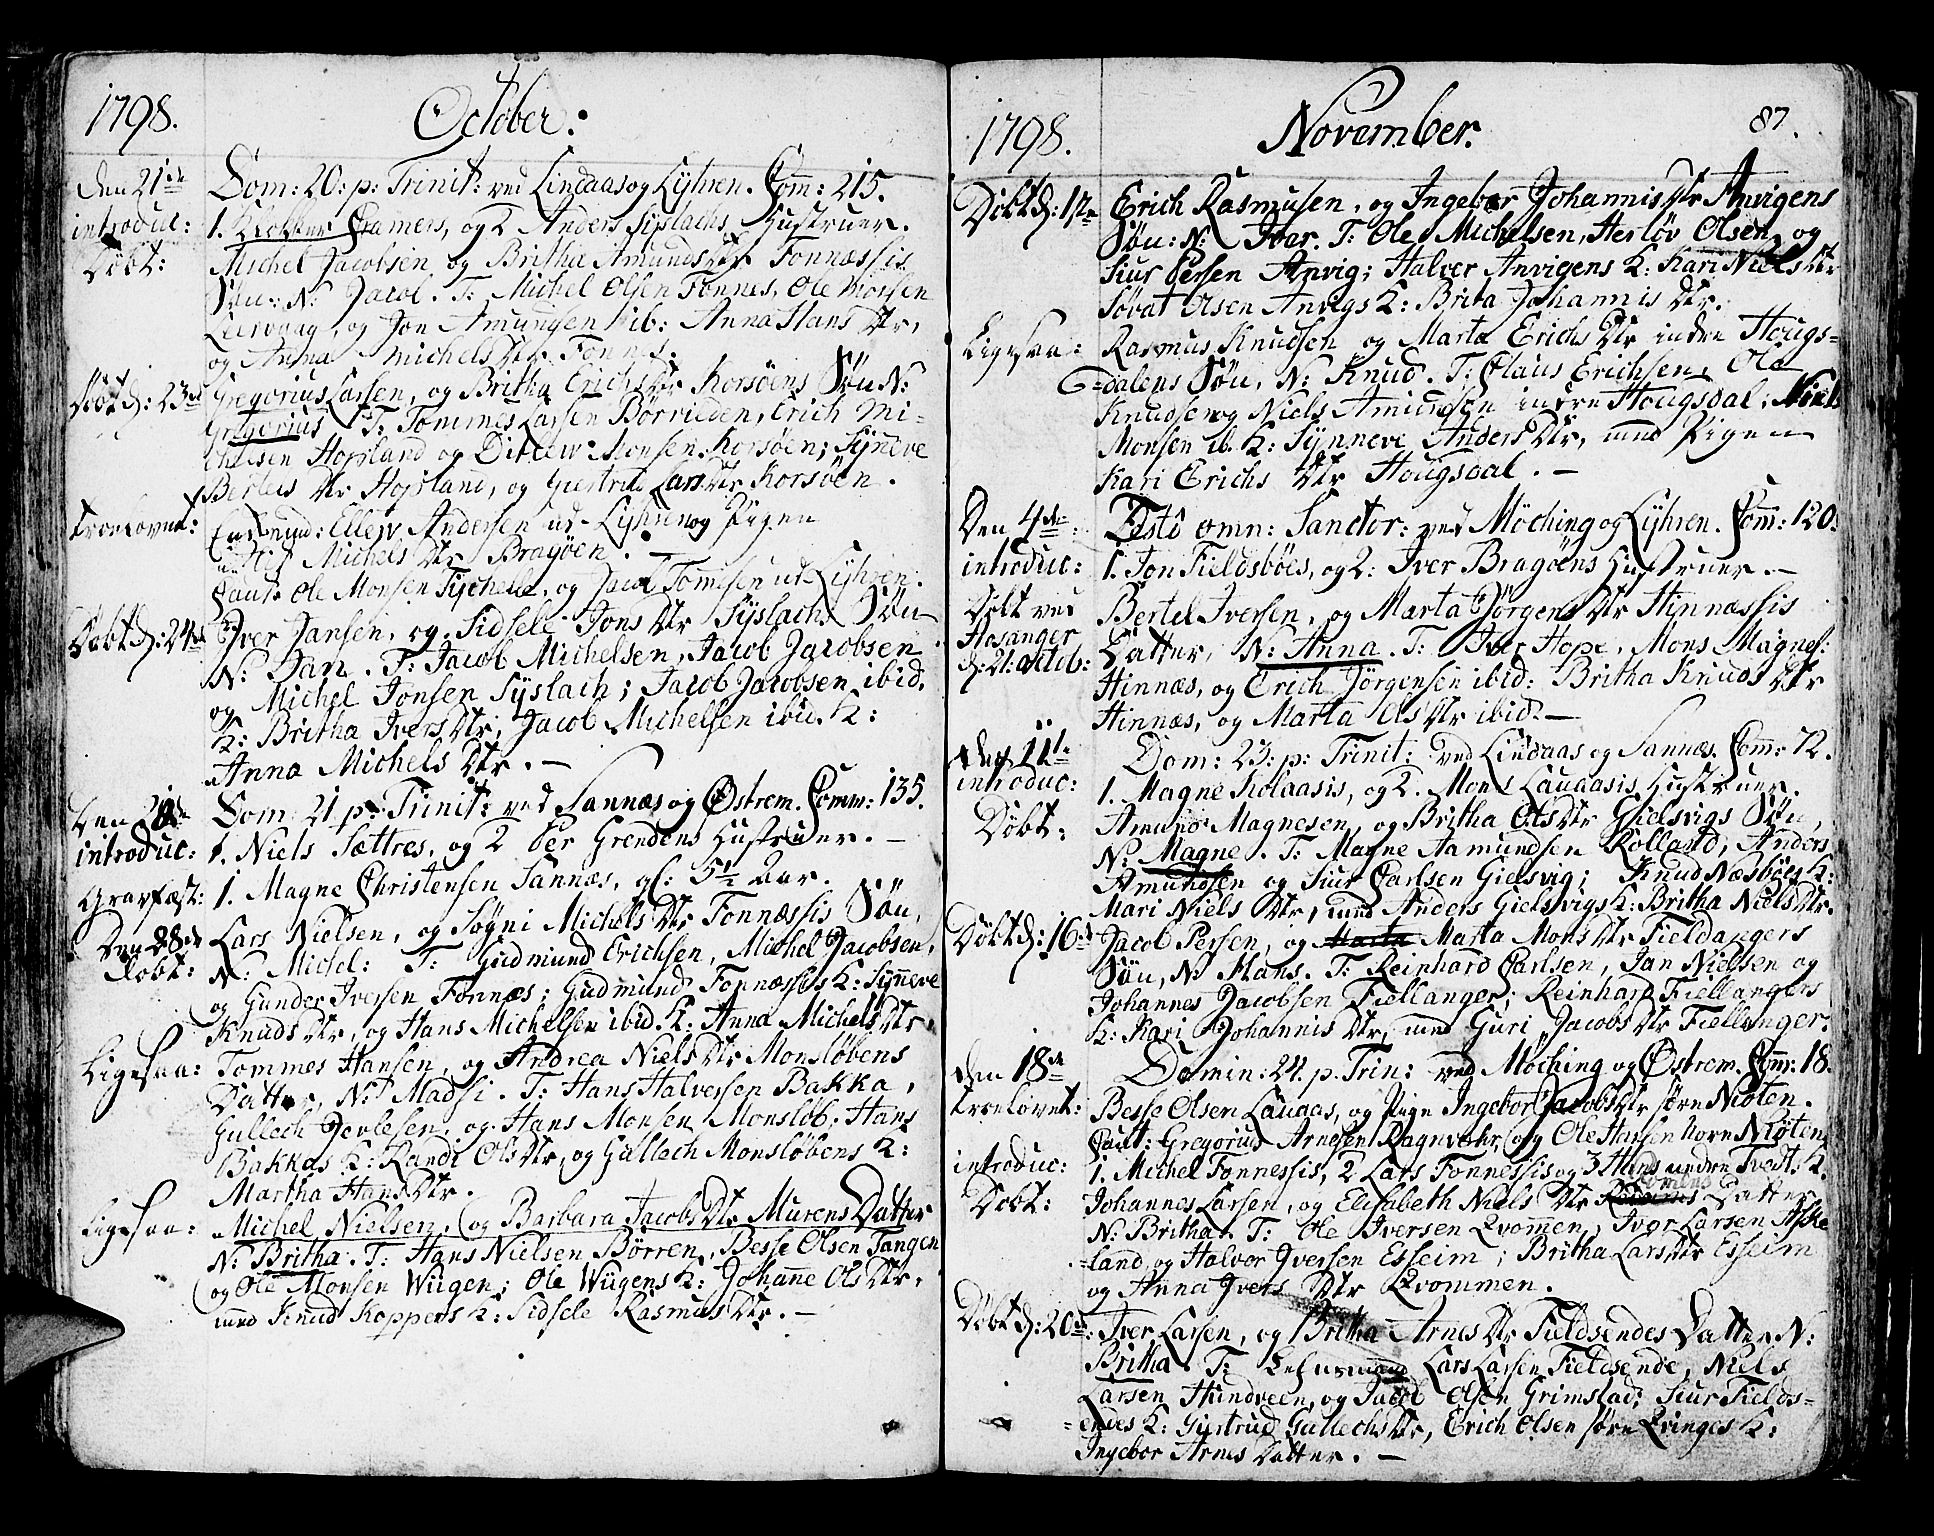 1798. October:
den 21de Dom: 20: p: Trinit: ved Lindaas og Lyhren. Com: 215.
introduc: 1. Klokker Cramers, og 2 Anders Syslachs Hustruer.
Døbt: Michel Jacobsen og Britha Amunds Dtr Fonnæssis
Søn: N: Jacob. T: Michel Olsen Fonnes, Ole Monsen
Leervaag, og Jon Amundsen ib: Anna Hans Dtr,
og Anna Michels Dtr Fonnes.
Døbt d: 23de Gregorius Larsen, og Britha Erichs Dtr Korsöens Søn N:
Gregorius T: Tommes Larsen Börvieden, Erich Mi-
chelsen Hopland og Ditlew Monsen Korsöen; Sÿneve
Bertels Dtr Hopland, og Giertrud Lars Dtr Korsöen.
Troelovet: Ellew Andersen ud- Lyhren og Pigen
Michels Dtr Bragöen. -
Caut: Ole Monsen Tychelle, og Jacob Tomesen ud Lyhren.
Døbt d: 24de Iver Jansen, og Sidsele Jons Dtr Syslachs Søn
N: Jan. T: Jacob Michelsen, Jacob Jacobsen
og Michel Jonsen Syslach; Jacob Jacobsen ibid.
K: Britha Ivers Dtr; Jacob Michelsen ibid. K:
Anna Michels Dtr. -
Den 28de Dom: 21 p: Trinit: ved Sannæs og Østrem. Comm: 135.
introduc: 1. Niels Sættres, og 2 Per Grendens Hustruer. -
Gravfæst: 1. Magne Christensen Sannæs, gl: 5½ Aar.
Den 28de Lars Nielsen, og Søgni Michels Dtr Fonnæssis Søn,
Døbt: N: Michel: T: Gudmund Erichsen, Michel Jacobsen,
og Gunder Iversen Fonnæs; Gudmund Fonnæssis K: Synneve
Knuds Dtr, og Hans Michelsen ibid. K: Anna Michels Dtr.
Ligesaa: Tommes Hansen, og Andrea Niels Dtr Monslöbens
Datter, N: Madsi. T: Hans Halversen Bakka,
Gullech Jerlesen, og Hans Monsen Monslöb; Hans
Bakkas K: Randi Ols Dtr, og Gullech Monslöbens K:
Martha Hans Dtr.
Ligesaa: Michel Nielsen, og Barbara Jacobs Dtr Murens Datter
N: Britha. T: Hans Nielsen Börren, Besse Olsen Tangen
og Ole Monsen Wügen; Ole Wügens K: Johanne Ols Dtr,
med Knud Koppers K: Sidsele Rasmus Dtr. -
1798. November. 87.
Døbt d: 1ste Erich Rasmusen, og Ingebor Johannis Dtr Anvigens
Søn: N: Iver. T: Ole Michelsen, Herlöv Olsen, og
Siur Persen Anvig; Halver Anvigens K: Kari Niels Dtr
Søvat Olsen Anvigs K: Brita Johannis Dtr.
Ligesaa: Rasmus Knudsen og Marta Erichs Dtr indre Hougs-
=dalens Søn, N: Knud. T: Claus Erichsen, Ole
Knudsen og Niels Amundsen indre Hougsdal; Niels
Monsen ib. K: Synneve Anders Dtr, med Pigen
Kari Erichs Dtr Hougsdal. -
Den 4de Festo omn: Sanctor: ved Möching og Lyhren. Com: 120.
introduc: 1. Jon Fieldsböes, og 2: Iver Bragöens Hustruer. -
Døbt ved Bertel Iversen, og Marta Jörgens Dtr Hinnæssis
Hosanger Datter, N: Anna. T: Iver Hope, Mons Magnes:
d: 21. octob: Hinnæs, og Erich Jörgensen ibid: Britha Knuds Dtr
Hinnæs, og Marta Ols Dtr ibid. -
den 11te Dom: 23: p: Trinit: ved Lindaas og Sannæs. Com: 72.
introduc: 1. Magne Kolaasis, og 2. Mons Lauaasis Hustruer.
Døbt: Amund Magnesen, og Britha Ols Dtr Gielsvigs Søn,
N: Magne. T: Magne Aamundsen Rolland, Anders
Amundsen og Siur Carlsen Gielsvig; Knud Næsböes K:
Mari Niels Dtr, med Anders Gielsvigs K: Britha Niels Dtr.
Døbt d: 16de Jacob Persen, og Marta Marta Mons Dtr Fieldangers
Søn, N: Hans. T: Reinhard Carlsen, Jan Nielsen og
Johannes Jacobsen Fiellanger; Reinhart Fiellangers
K: Kari Johannis Dtr, med Guri Jacobs Dtr Fiellanger.
den 18de Domin: 24. p. Trin: ved Möching og Østrem. Com: 18.
Troelovet: Besse Olsen Lauaas, og Pige Ingebor Jacobs Dtr söre Niöten.
Caut: Gregorius Arnesen Ragnvohr, og Ole Hansen Niöten.
introduc: 1. Michel Fonnessis, 2 Lars Fonnessis og 3 Hans nedre Tvedt K.
Døbt: Johannes Larsen, og Elisabeth Niels Dtr Datter
N: Britha. T: Ole Iversen Qvommen, Ivar Larsen Aske
=land, og Halvor Iversen Esseim; Britha Lars Dtr Esseim
og Anna Ivers Dtr Qvommen.
Døbt d: 20de Iver Larsen, og Britha Arnes Dtr Fieldsendes Datter N:
Britha. T: Lehnsmand Lars Larsen Fieldsende, Niels
Larsen Hundveen, og Jacob Olsen Grimstad; Siur Fields-
=endes K: Giertrud Gullechs Dtr, Erich Olsen söre Qvinges K:
Ingebor Arnes Datter. -